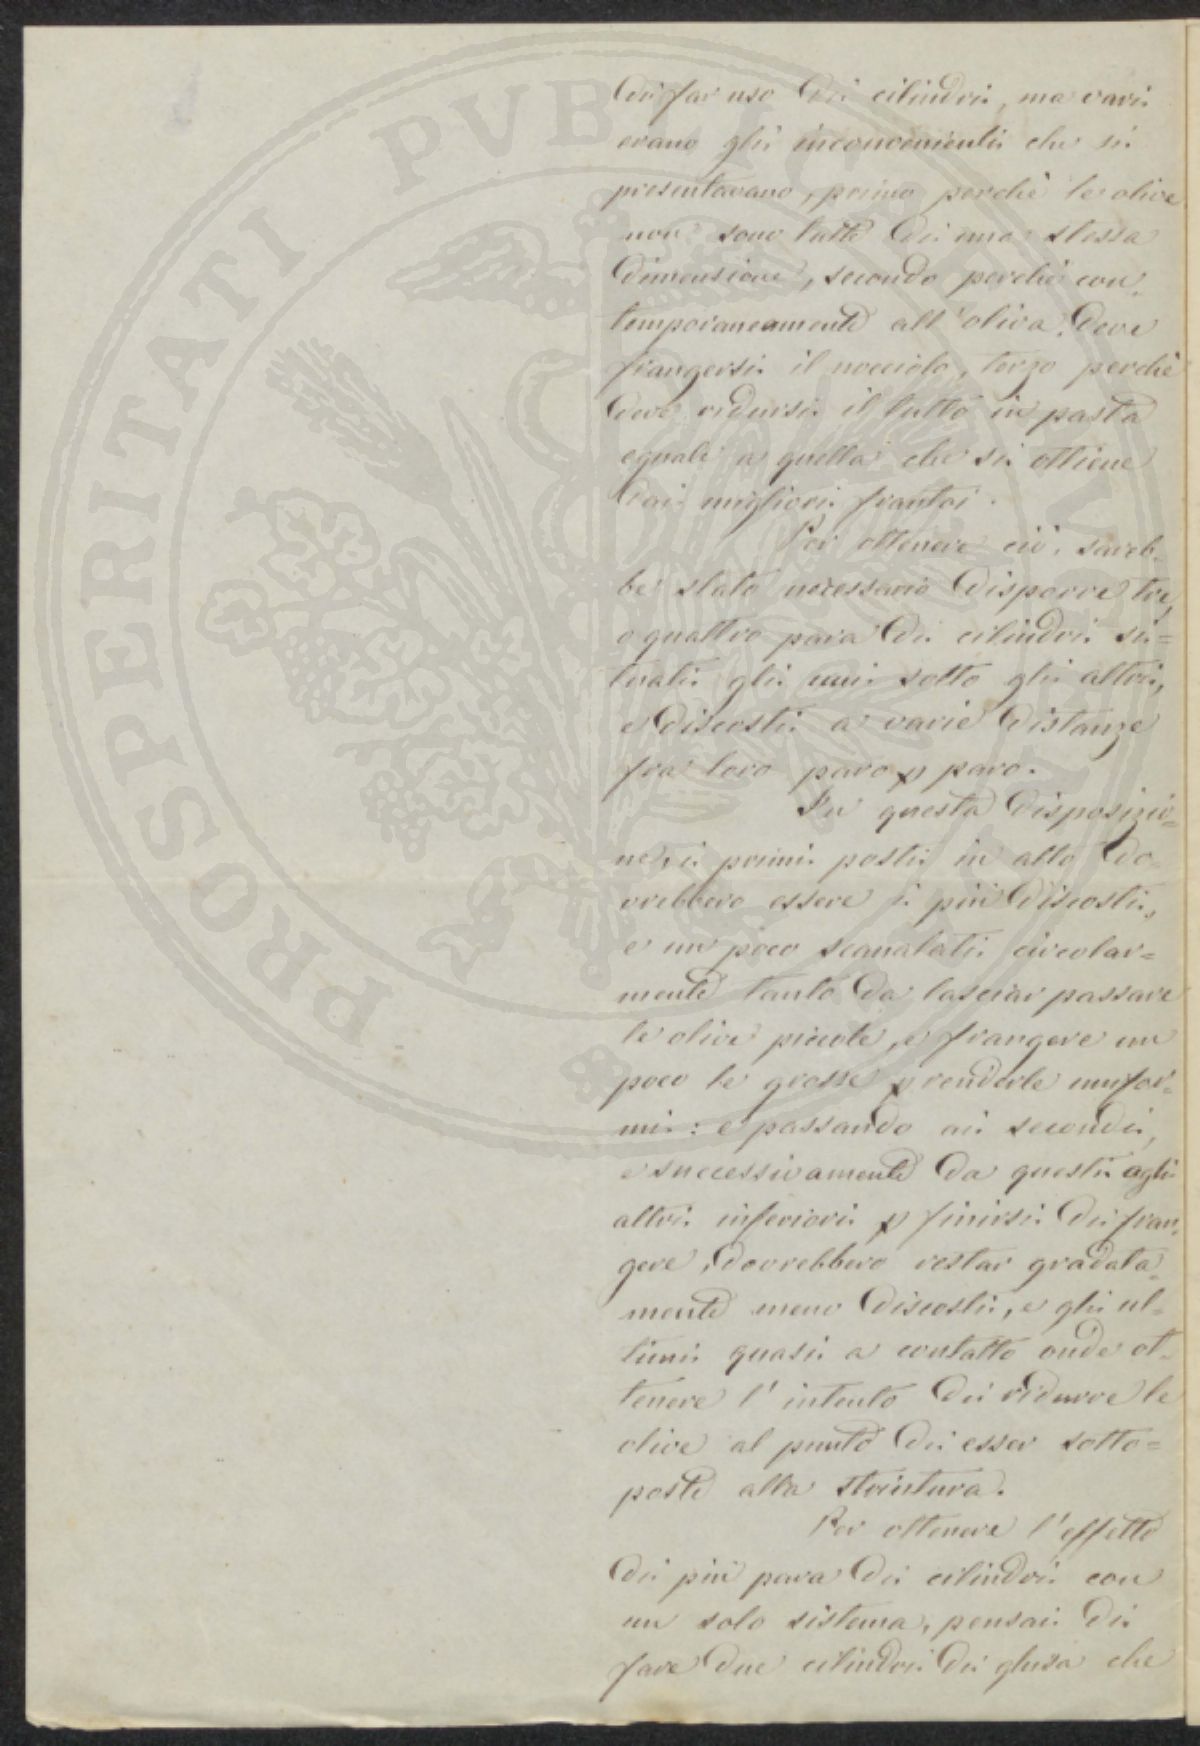 di far uso di cilindri, ma varii
erano gli inconvenienti che si
presentavano, primo perchè le olive
non sono tutte di una stessa
dimensione, secondo perchè con-
temporaneamente all'oliva deve
frangersi il nocciolo, terzo perchè
deve ridursi il tutto in pasta
eguale a quella che si ottiene
dai migliori frantoi.
Per ottenere ciò, sareb-
be stato necessario disporre tre,
o quattro paia di cilindri si=
tuati gli uni sotto gli altri,
e discosti a varie distanze
fra loro paro p paro.
In questa disposizio=
ne i primi posti in alto do-
vrebbero essere i più discosti,
e un poco scanalati circolar=
mente tanto da lasciar passare
le olive piccole, e frangere un
poco le grosse p renderle unifor=
mi: e passando ai secondi,
e successivamente da questi agli
altri inferiori p finirsi di fran-
gere, dovrebbero restar gradata-
mente meno discosti, e gli ul=
timi quasi a contatto onde ot-
tenere l'intento di ridurre le
olive al punto di esser sotto=
poste alla strintura.
Per ottenere l'effetto
di più para di cilindri con
un solo sistema, pensai di
fare due cilindri di ghisa che
PROSPERITATI PUBLICAE